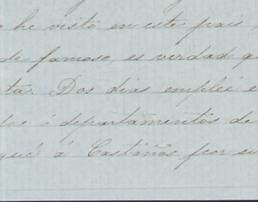 he visto en este pais
de famoso, es verdad q
ta. Dos dias empleé e
ó departamentos de
qué á Castaños por su